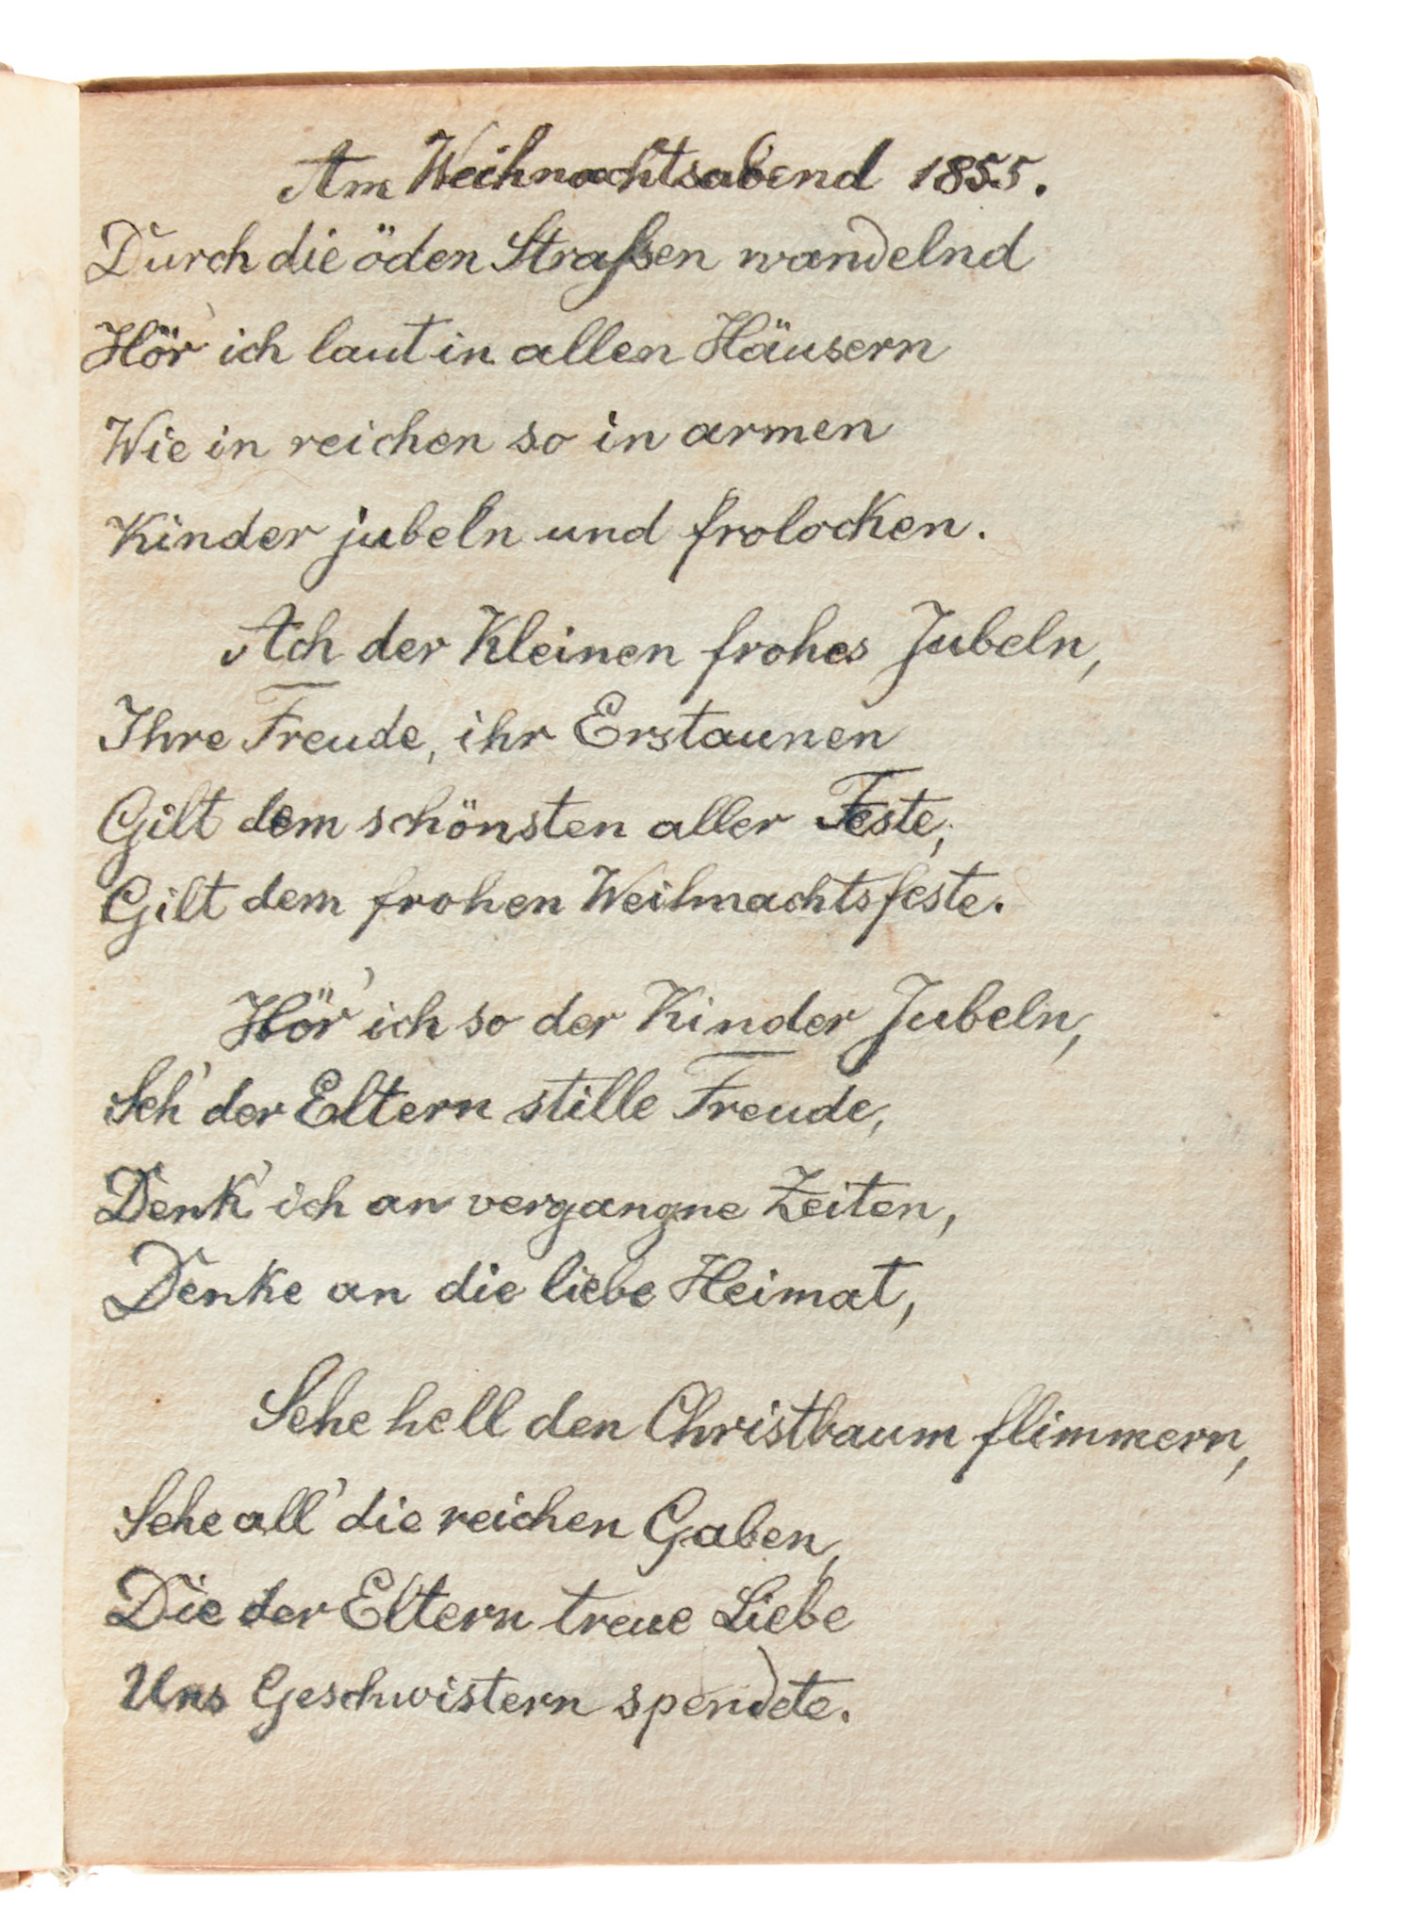 Am Weihnachtsabend 1855.
Durch die öden Straßen wandelnd
Hör' ich laut in allen Häusern
Wie in reichen so in armen
Kinder jubeln und frolocken.
Ach der Kleinen frohes Jubeln,
Ihre Freude, ihr Erstaunen
Gilt dem schönsten aller Feste,
Gilt dem frohen Weihnachtsfeste.
Hör' ich so der Kinder Jubeln,
Seh' der Eltern stille Freude,
Denk' ich an vergangne Zeiten,
Denke an die liebe Heimat,
Sehe hell den Christbaum flimmern,
Sehe all' die reichen Gaben,
Die der Eltern treue Liebe
Uns Geschwistern spendete.